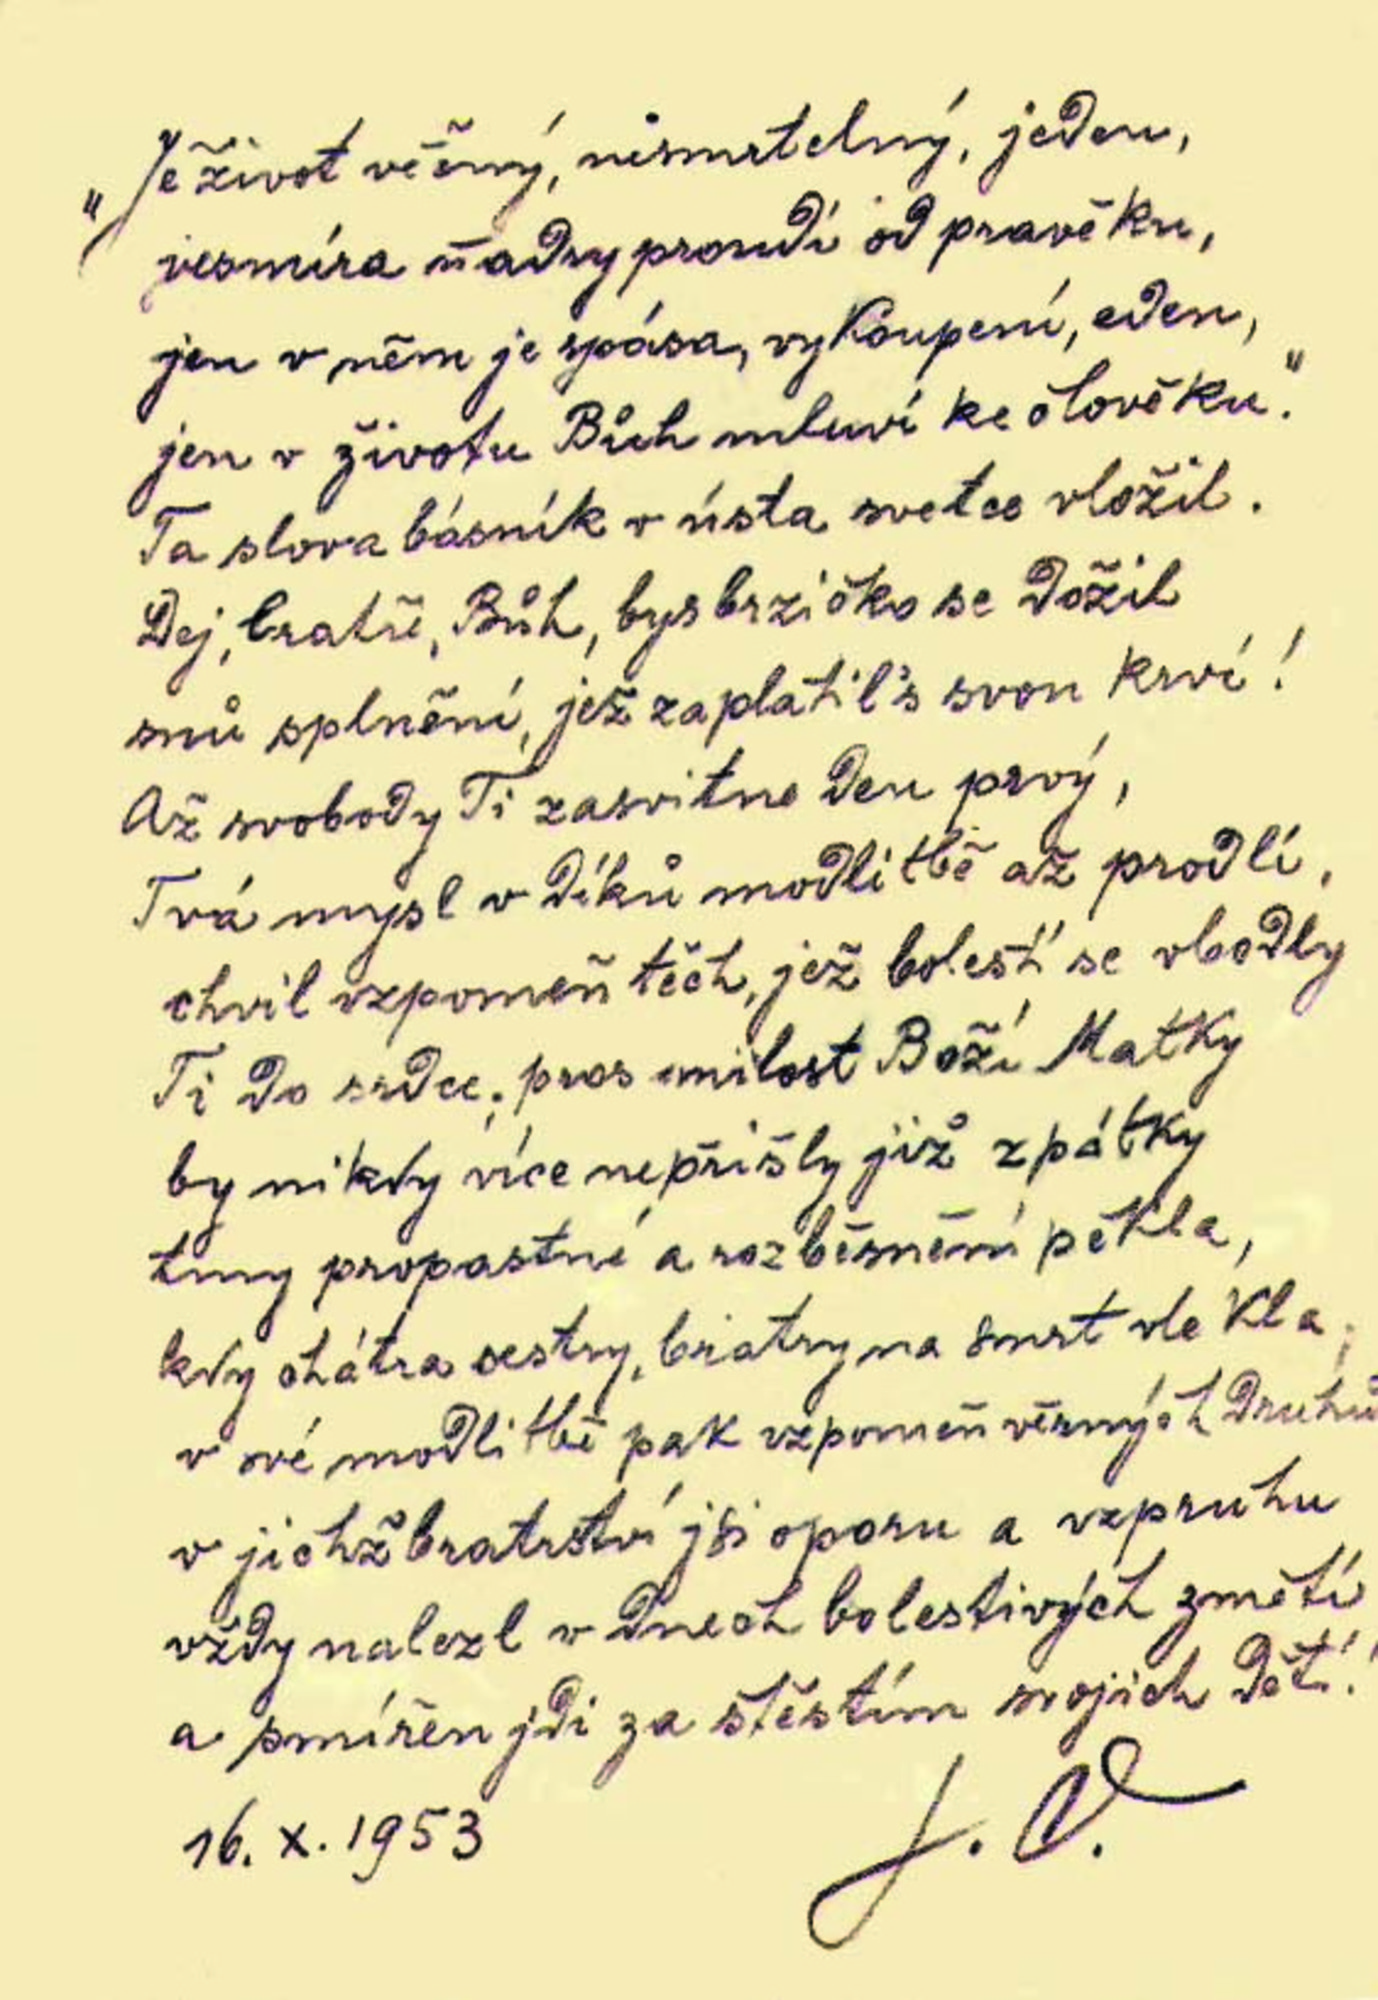 „Je život věčný, nesmrtelný, jeden,
vesmíra ňadry proudí od pravěku,
jen v něm je spása, vykoupení, eden,
jen v životu Bůh mluví ke člověku."
Ta slova básník v ústa světce vložil.
Dej, bratře, Bůh, bys brzičko se dožil
snů splnění, jež zaplatil's svou krví!
Až svobody Ti zasvitne den prvý,
Tvá mysl v díků modlitbě až prodlí,
chvil vzpomeň těch, jež bolestí se vbodly
Ti do srdce; pros milost Boží Matky
by nikdy více nepřišly již zpátky
tmy propastné a rozběsnění pekla,
kdy chátra sestry, bratry na smrt vlekla,
v své modlitbě pak vzpomeň věrných druhů
v jichž bratrství jsi oporu a vzpruhu
vždy nalezl v dnech bolestivých změtí
a smířen jdi za štěstím svojich dětí!
16. X. 1953
J. V.